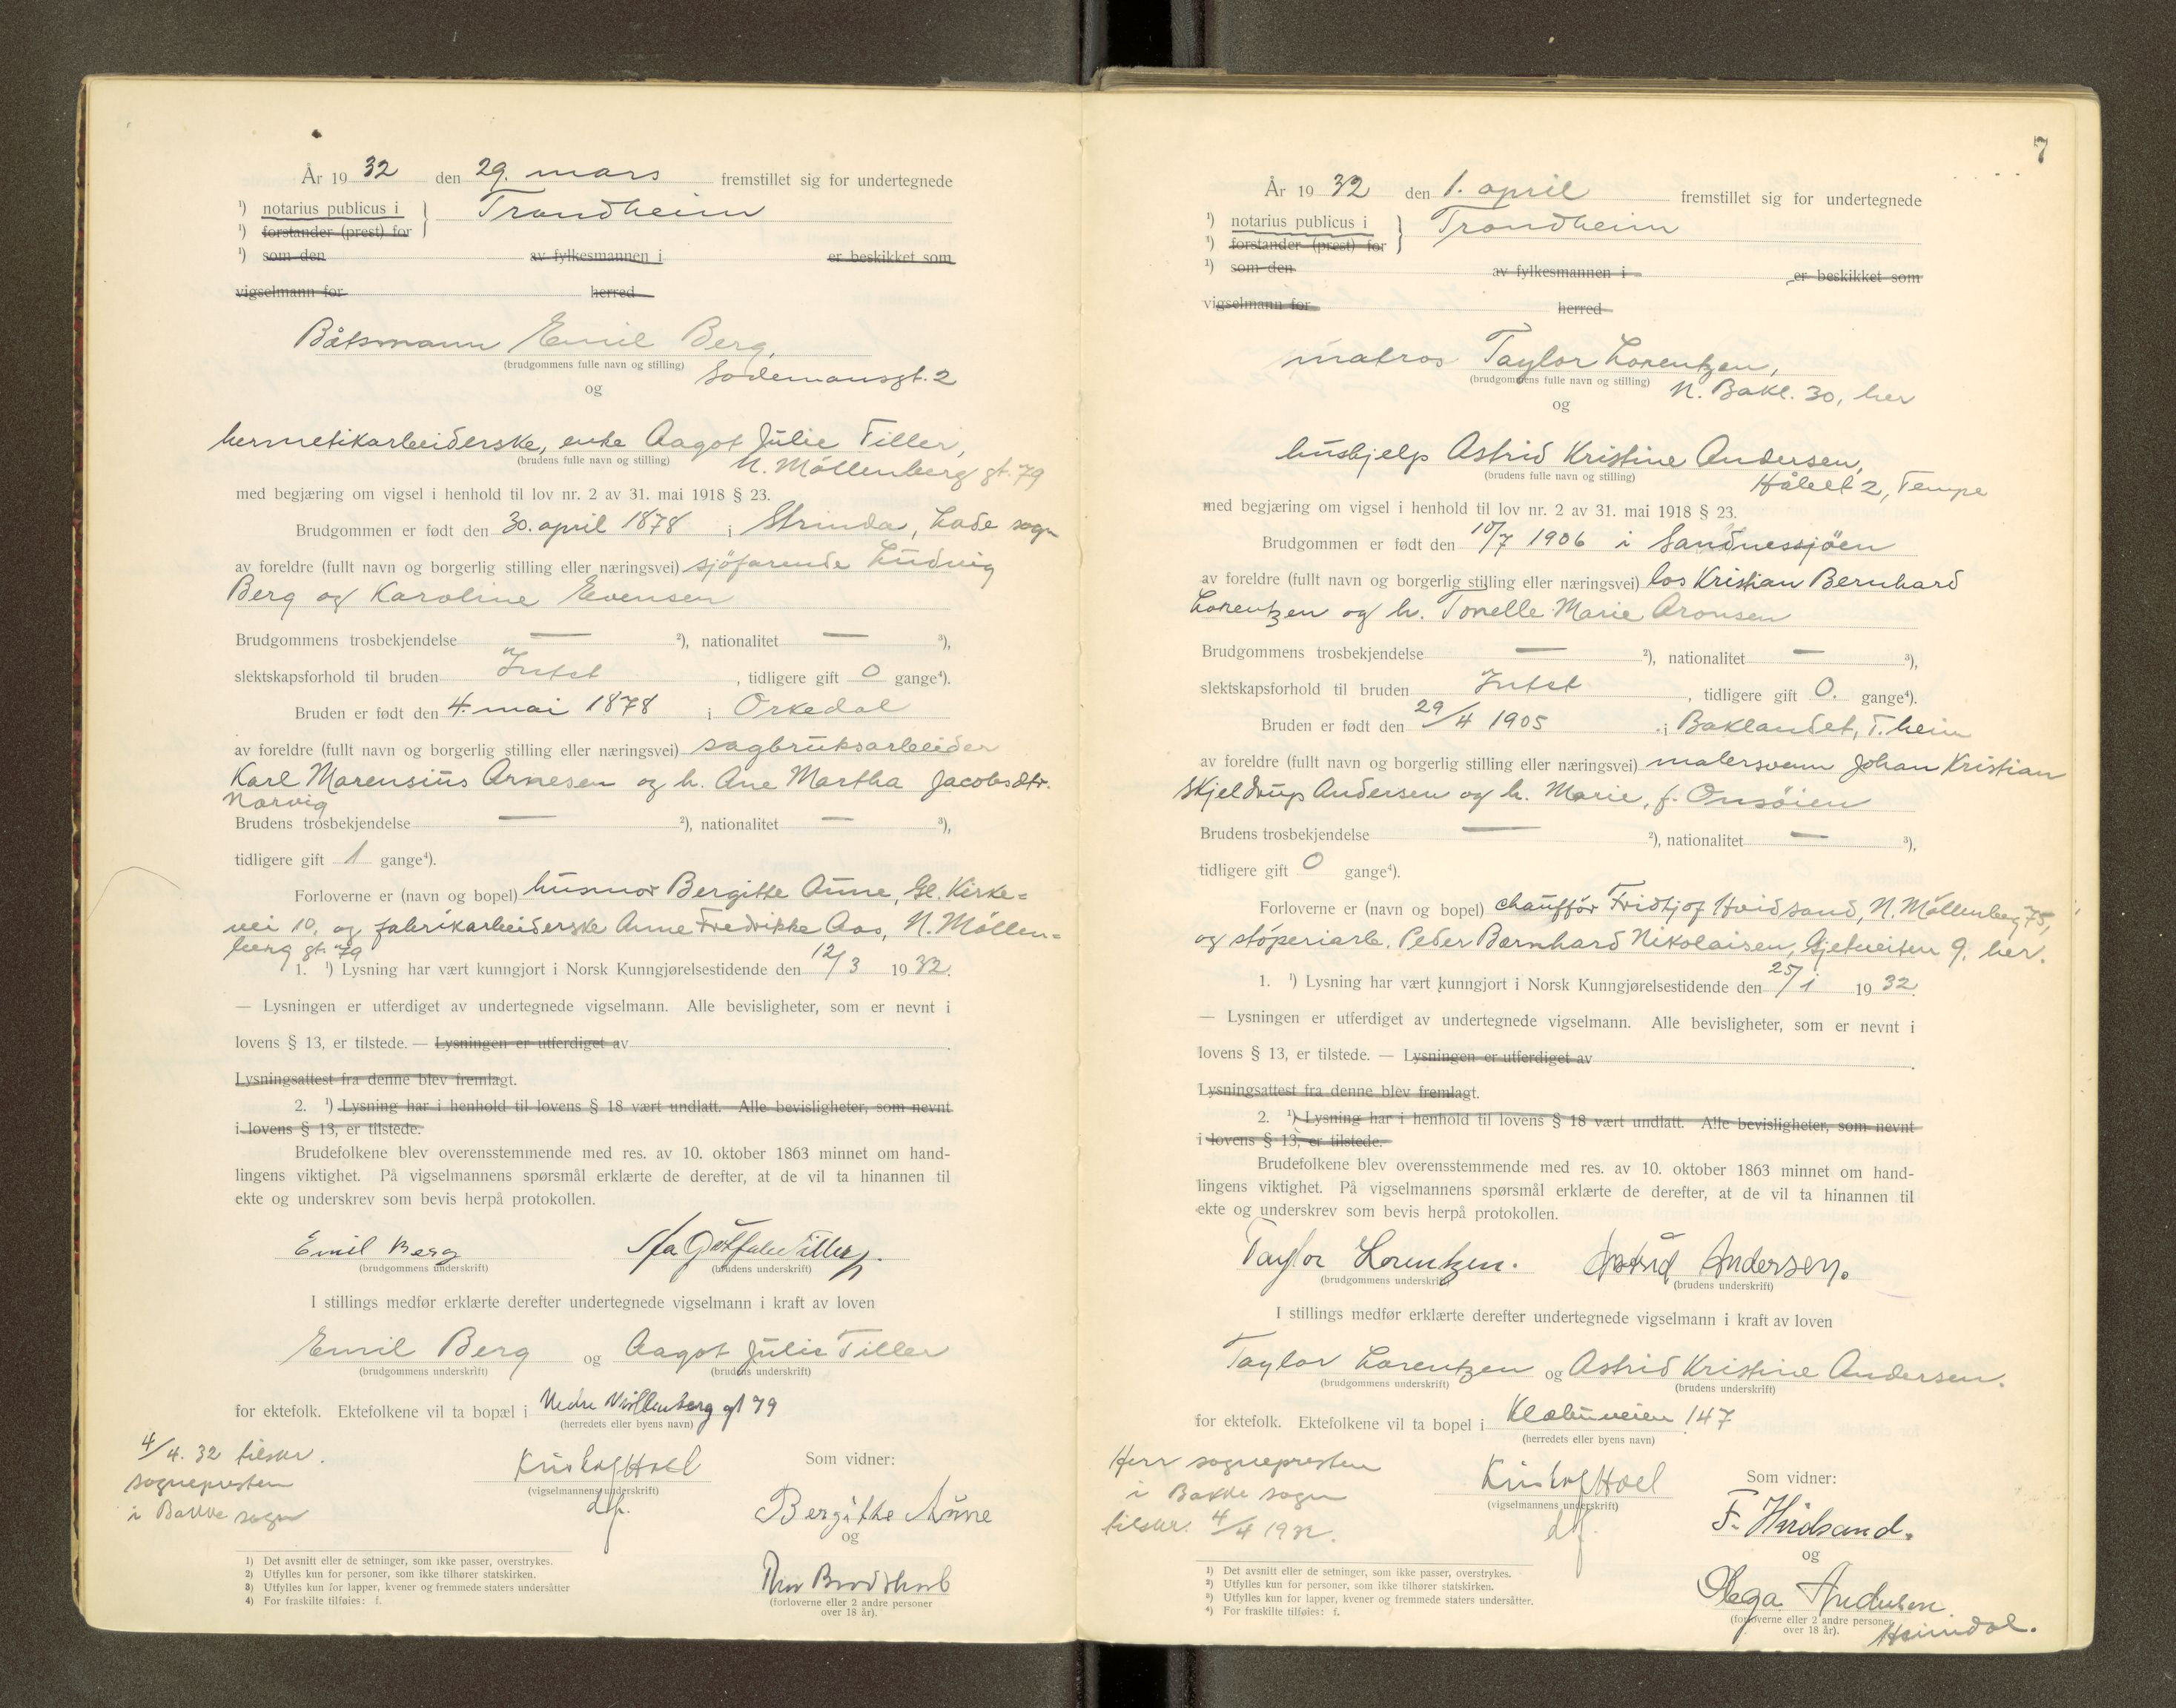 År 19 32 den 29. mars fremstillet sig for undertegnede
¹) notarius publicus i } Trondheim
¹) forstander (prest) for
¹) som den av fylkesmannen i er beskikket som
vigselmann for herred
Båtsmann Emil Berg,
(brudgommens fulle navn og stilling) Sodemansgt. 2
og
hermetikarbeiderske, enke Aagot Julie Tiller,
(brudens fulle navn og stilling) N. Möllenberg gt. 79
med begjæring om vigsel i henhold til lov nr. 2 av 31. mai 1918 § 23.
Brudgommen er født den 30. april 1878 i Strinda, Lade sogn
av foreldre (fullt navn og borgerlig stilling eller næringsvei) sjöfarende Ludvig
Berg og Karoline Evensen
Brudgommens trosbekjendelse — ²), nationalitet — ³),
slektskapsforhold til bruden Intet, tidligere gift 0 gange⁴).
Bruden er født den 4. mai 1878 i Orkedal
av foreldre (fullt navn og borgerlig stilling eller næringsvei) sagbruksarbeider
Karl Marensius Arnesen og h. Ane Martha Jacobsdtr.
Narvig
Brudens trosbekjendelse — ²), nationalitet — ³),
tidligere gift 1 gange⁴).
Forloverne er (navn og bopel) husmor Bergitte Aune, Gl. Kirke=
vei 10, og fabrikarbeiderske Anne Fredrikke Aas, N. Möllen=
berg gt. 79
1. ¹) Lysning har vært kunngjort i Norsk Kunngjørelsestidende den 12/3 1932.
— Lysningen er utferdiget av undertegnede vigselmann. Alle bevisligheter, som er nevnt i
lovens § 13, er tilstede. — Lysningen er utferdiget av
Lysningsattest fra denne blev fremlagt.
2. ¹) Lysning har i henhold til lovens § 18 vært undlatt. Alle bevisligheter, som nevnt
i lovens § 13, er tilstede.
Brudefolkene blev overensstemmende med res. av 10. oktober 1863 minnet om hand-
lingens viktighet. På vigselmannens spørsmål erklærte de derefter, at de vil ta hinannen til
ekte og underskrev som bevis herpå protokollen.
Emil Berg Aagot Julie Tiller
(brudgommens underskrift) (brudens underskrift)
I stillings medfør erklærte derefter undertegnede vigselmann i kraft av loven
Emil Berg og Aagot Julie Tiller
(brudgommens underskrift) (brudens underskrift)
for ektefolk. Ektefolkene vil ta bopæl i Nedre Möllenberg gt 79
(herredets eller byens navn)
4/4. 32 tilskr.
sognepresten
i Bakke sogn
Kristof Hoel
(vigselmannens underskrift)
df.
Som vidner:
Bergithe Aune
og
(forloverne eller 2 andre personer
over 18 år).
1) Det avsnitt eller de setninger, som ikke passer, overstrykes.
2) Utfylles kun for personer, som ikke tilhører statskirken.
3) Utfylles kun for lapper, kvener og fremmede staters undersåtter
4) For fraskilte tilføies: f.
7
År 19 32 den 1. april fremstillet sig for undertegnede
¹) notarius publicus i } Trondheim
¹) forstander (prest) for
¹) som den av fylkesmannen i er beskikket som
vigselmann for herred
matros Taylor Lorentzen,
(brudgommens fulle navn og stilling) N. Bakl. 30, her
og
hushjelp Astrid Kristine Andersen,
(brudens fulle navn og stilling) 2, Tempe
med begjæring om vigsel i henhold til lov nr. 2 av 31. mai 1918 § 23.
Brudgommen er født den 10/7 1906 i Sandnessjöen
av foreldre (fullt navn og borgerlig stilling eller næringsvei) los Kristian Bernhard
Lorentzen og h. Tonelle Marie Aronsen
Brudgommens trosbekjendelse — ²), nationalitet — ³),
slektskapsforhold til bruden Intet, tidligere gift 0. gange⁴).
Bruden er født den 29/4 1905 i Baklandet, T.heim
av foreldre (fullt navn og borgerlig stilling eller næringsvei) malersvenn Johan Kristian
Skjeldrup Andersen og h. Marie, f. Onsöien
Brudens trosbekjendelse — ²), nationalitet — ³),
tidligere gift 0 gange⁴).
Forloverne er (navn og bopel) chaufför Fridtjof Hvidsand, N. Möllenberg 75,
og stöperiarb. Peder Bernhard Nikolaisen, Gjetveiten 9, her.
1. ¹) Lysning har vært kunngjort i Norsk Kunngjørelsestidende den 25/1 1932.
— Lysningen er utferdiget av undertegnede vigselmann. Alle bevisligheter, som er nevnt i
lovens § 13, er tilstede. — Lysningen er utferdiget av
Lysningsattest fra denne blev fremlagt.
2. ¹) Lysning har i henhold til lovens § 18 vært undlatt. Alle bevisligheter, som nevnt
i lovens § 13, er tilstede.
Brudefolkene blev overensstemmende med res. av 10. oktober 1863 minnet om hand-
lingens viktighet. På vigselmannens spørsmål erklærte de derefter, at de vil ta hinannen til
ekte og underskrev som bevis herpå protokollen.
Taylor Lorentzen. Astrid Andersen.
(brudgommens underskrift) (brudens underskrift)
I stillings medfør erklærte derefter undertegnede vigselmann i kraft av loven
Taylor Lorentzen og Astrid Kristine Andersen.
(brudgommens underskrift) (brudens underskrift)
for ektefolk. Ektefolkene vil ta bopel i Klæbuveien 147
(herredets eller byens navn)
Herr sognepresten
i Bakke sogn
tilskr. 4/4 1932.
Kristof Hoel
(vigselmannens underskrift)
df.
Som vidner:
F. Hvidsand.
og
Olga Andersen.
(forloverne eller 2 andre personer
over 18 år). Heimdal.
¹) Det avsnitt eller de setninger, som ikke passer, overstrykes.
²) Utfylles kun for personer, som ikke tilhører statskirken.
³) Utfylles kun for lapper, kvener og fremmede staters undersåtter.
⁴) For fraskilte tilføies: f.